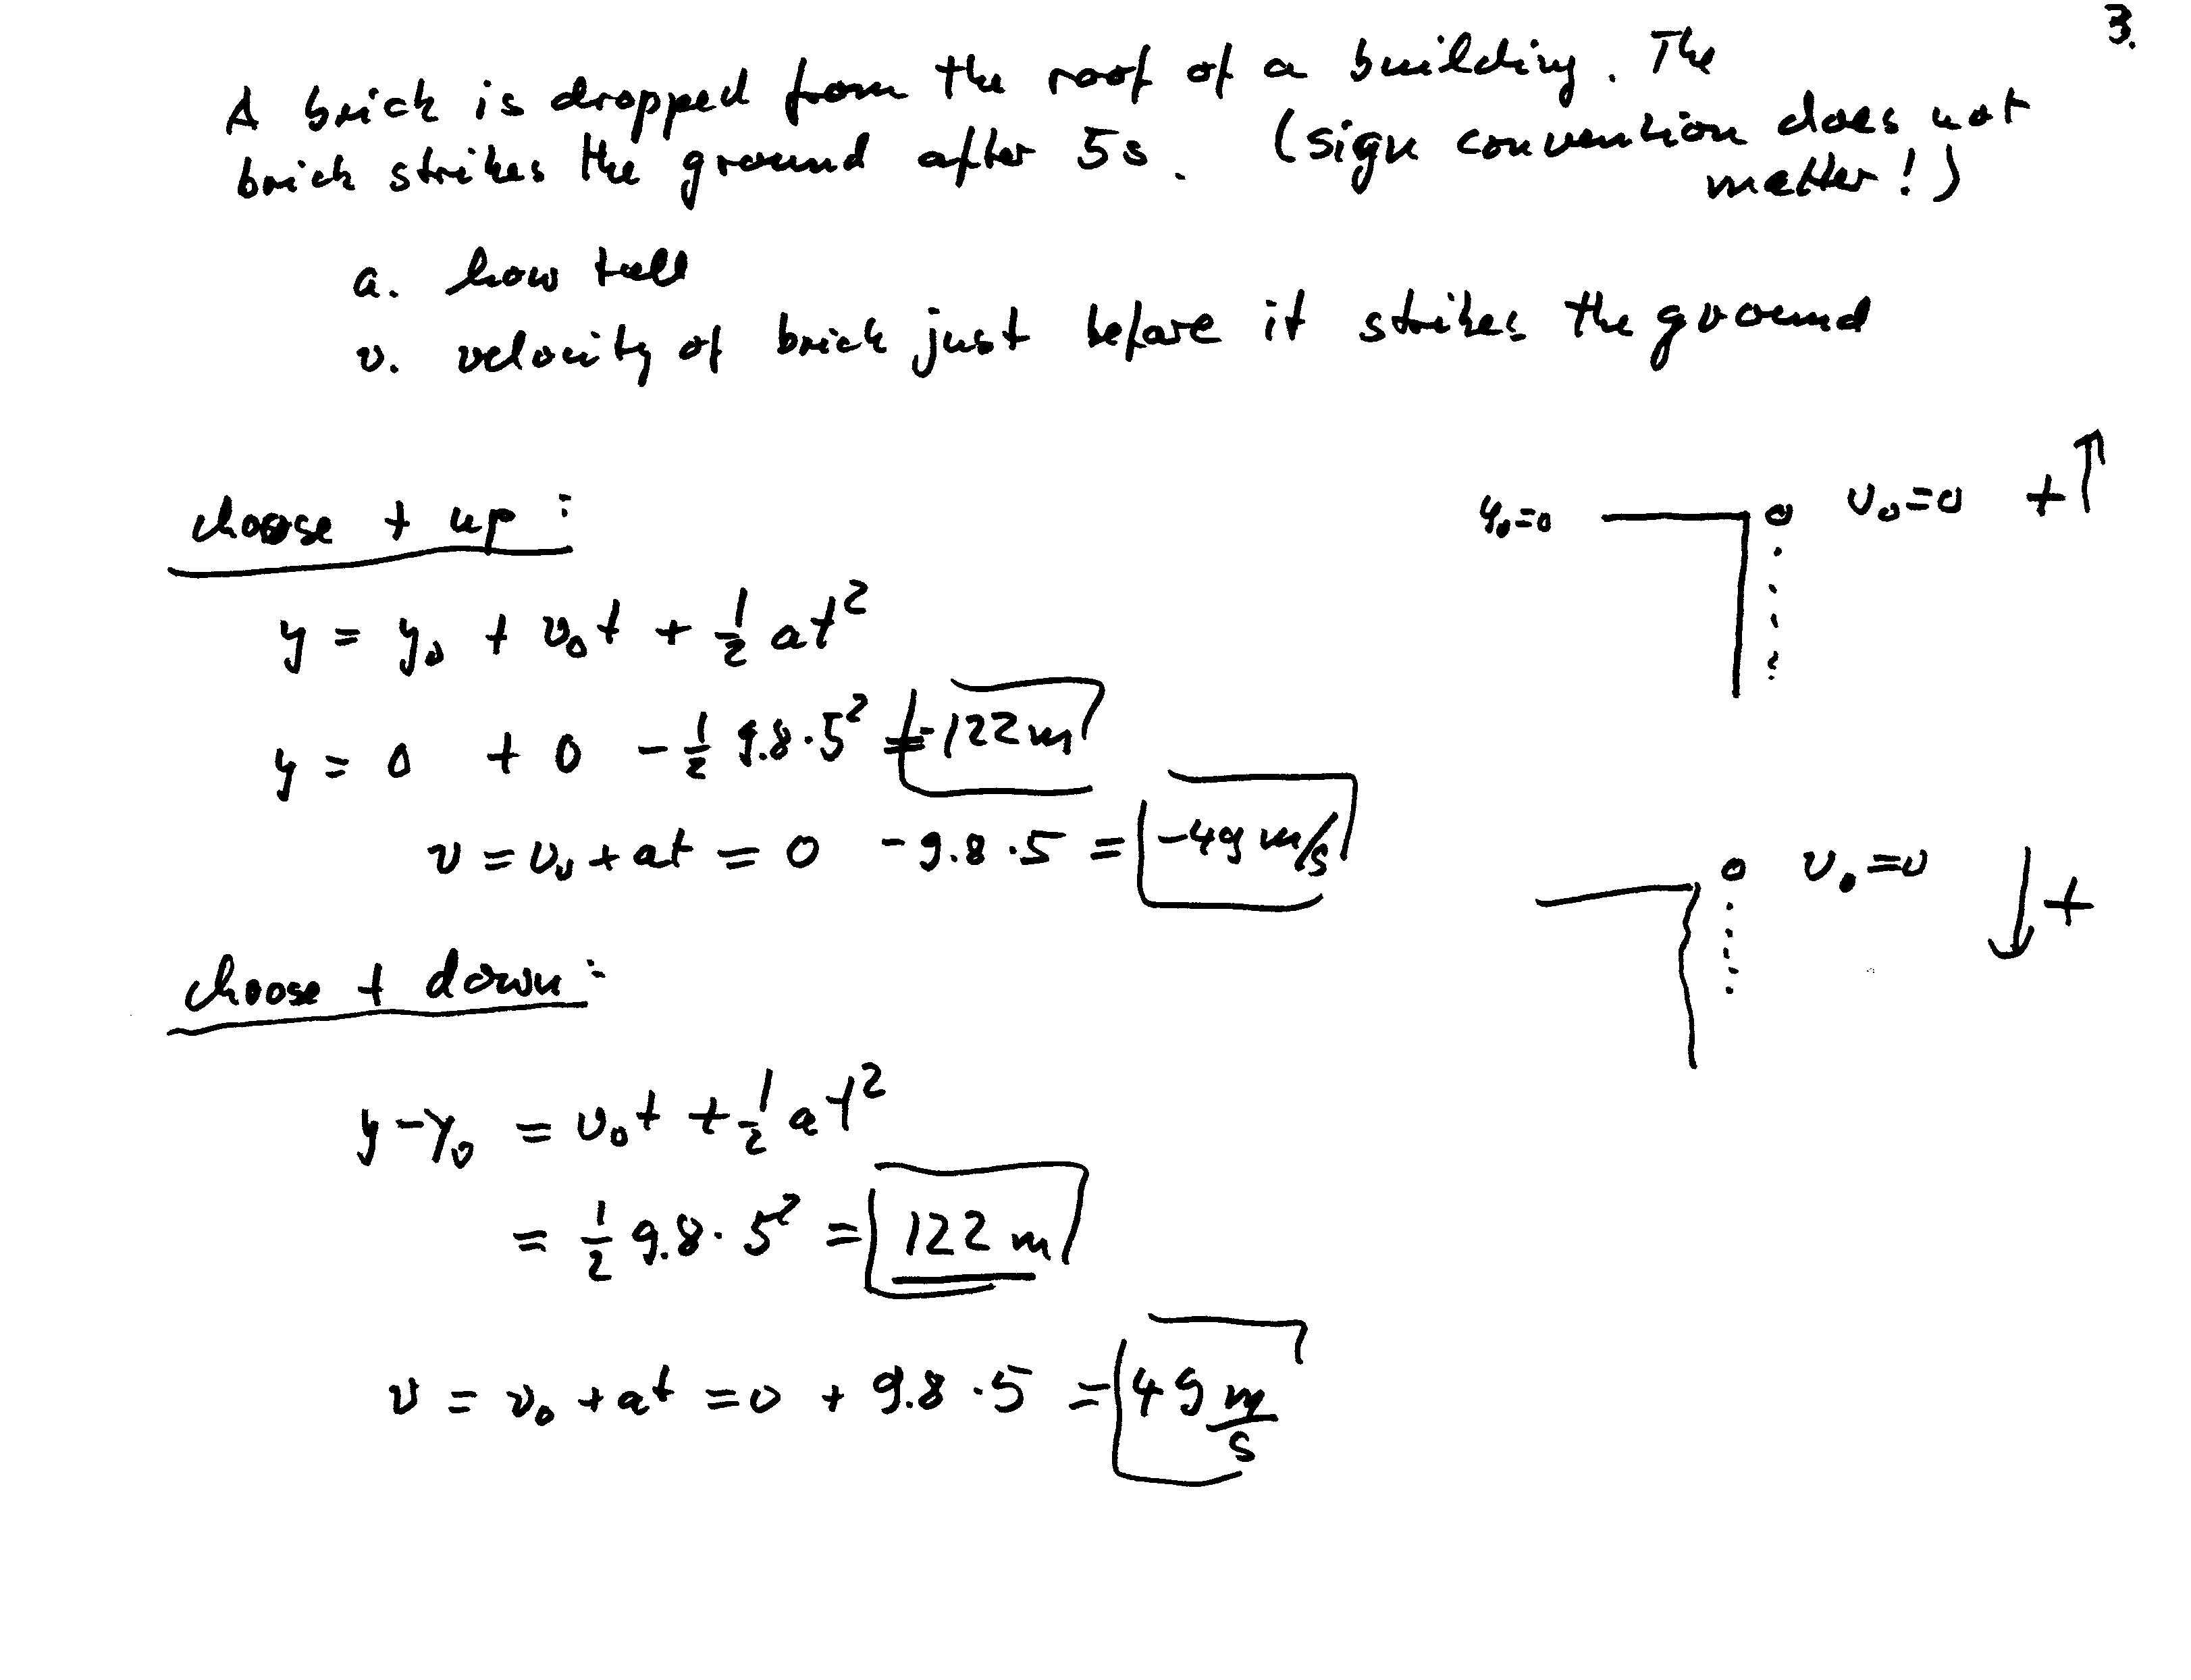 3.
A brick is dropped from the roof of a building. The
brick strikes the ground after 5s. (sign convention does not
matter!)
a. how tall
v. velocity of brick just before it strikes the ground
choose + up :
y₀=0 v₀=0 +↑
y = y₀ + v₀t + ½ at²
y = 0 + 0 - ½ 9.8·5² = -122 m
v = v₀ + at = 0 - 9.8·5 = -49 m/s
v₀=0 ↓+
choose + down :
y-y₀ = v₀t + ½ at²
= ½ 9.8·5² = 122 m
v = v₀ + at = 0 + 9.8·5 = 49 m/s